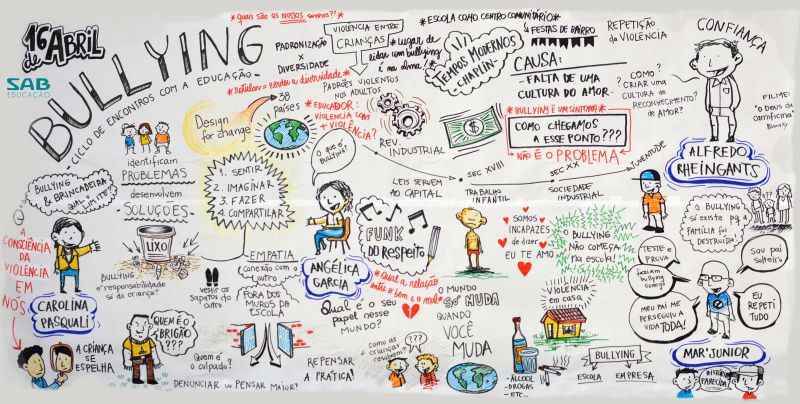 16 de ABRIL
SAB
EDUCAÇÃO
BULLYING
CICLO DE ENCONTROS COM A EDUCAÇÃO
*Quais são os NOSSOS sonhos??*
PADRONIZAÇÃO
X
DIVERSIDADE
VIOLÊNCIA ENTRE
CRIANÇAS
PADRÕES VIOLENTOS
NOS ADULTOS
*Lugar de
lidar com bullying
é na alma!
*ESCOLA COMO CENTRO COMUNITÁRIO*
FESTAS DE BAIRRO
REPETIÇÃO
DA VIOLÊNCIA
TEMPOS MODERNOS
CHAPLIN
CAUSA:
- FALTA DE UMA
CULTURA DO AMOR -
COMO
CRIAR UMA
CULTURA DE
RECONHECIMENTO
DE AMOR?
CONFIANÇA
FILME:
"O Deus da
carnificina"
ALFREDO
RHEINGANTS
*BULLYING É UM SINTOMA*
COMO CHEGAMOS
A ESSE PONTO???
NÃO É O PROBLEMA
Design
for change
38
PAÍSES
*EDUCADOR:
VIOLÊNCIA COM
+ VIOLÊNCIA?
REV.
INDUSTRIAL
SEC XVIII
SEC XX
JUVENTUDE
LEIS SERVEM
AO CAPITAL
TRABALHO
INFANTIL
SOCIEDADE
INDUSTRIAL
identificam
PROBLEMAS
desenvolvem
SOLUÇÕES
1. SENTIR
2. IMAGINAR
3. FAZER
4. COMPARTILHAR
BULLYING
& BRINCADEIRA
QUAL LIMITE?
CAROLINA
PASQUALI
A
CONSCIÊNCIA
DA
VIOLÊNCIA
EM
NÓS
LIXO
BULLYING
é responsabilidade
só da criança?
EMPATIA
conexão com o
outro
vestir os
sapatos do
outro
FORA DOS
MUROS DA
ESCOLA
O que é
bullying?
ANGÉLICA
GARCIA
FUNK
DO RESPEITO
*Qual a relação
entre o bem e o mal?
Qual é o seu
papel nesse
MUNDO?
SOMOS
INCAPAZES
de dizer
EU TE AMO
O BULLYING
NÃO COMEÇA
na escola!
VIOLÊNCIA
em casa
O MUNDO
SÓ MUDA
QUANDO
VOCÊ
MUDA
O BULLYING
só existe pq a
FAMÍLIA foi
DESTRUÍDA
TESTE e
PROVA
Sou pai
solteiro
MEU PAI ME
PERSEGUIU A
VIDA TODA!
EU
REPETI
TUDO
MAR'JUNIOR
A CRIANÇA
SE
ESPELHA
QUEM É O
BRIGÃO
???
Quem é
o culpado?
DENUNCIAR OU PENSAR MAIOR?
REPENSAR
A PRÁTICA!
como as
crianças
resolvem?
???
- ÁLCOOL
- DROGAS
- ETC...
BULLYING
ESCOLA
EMPRESA
HISTÓRIA
PARECIDA